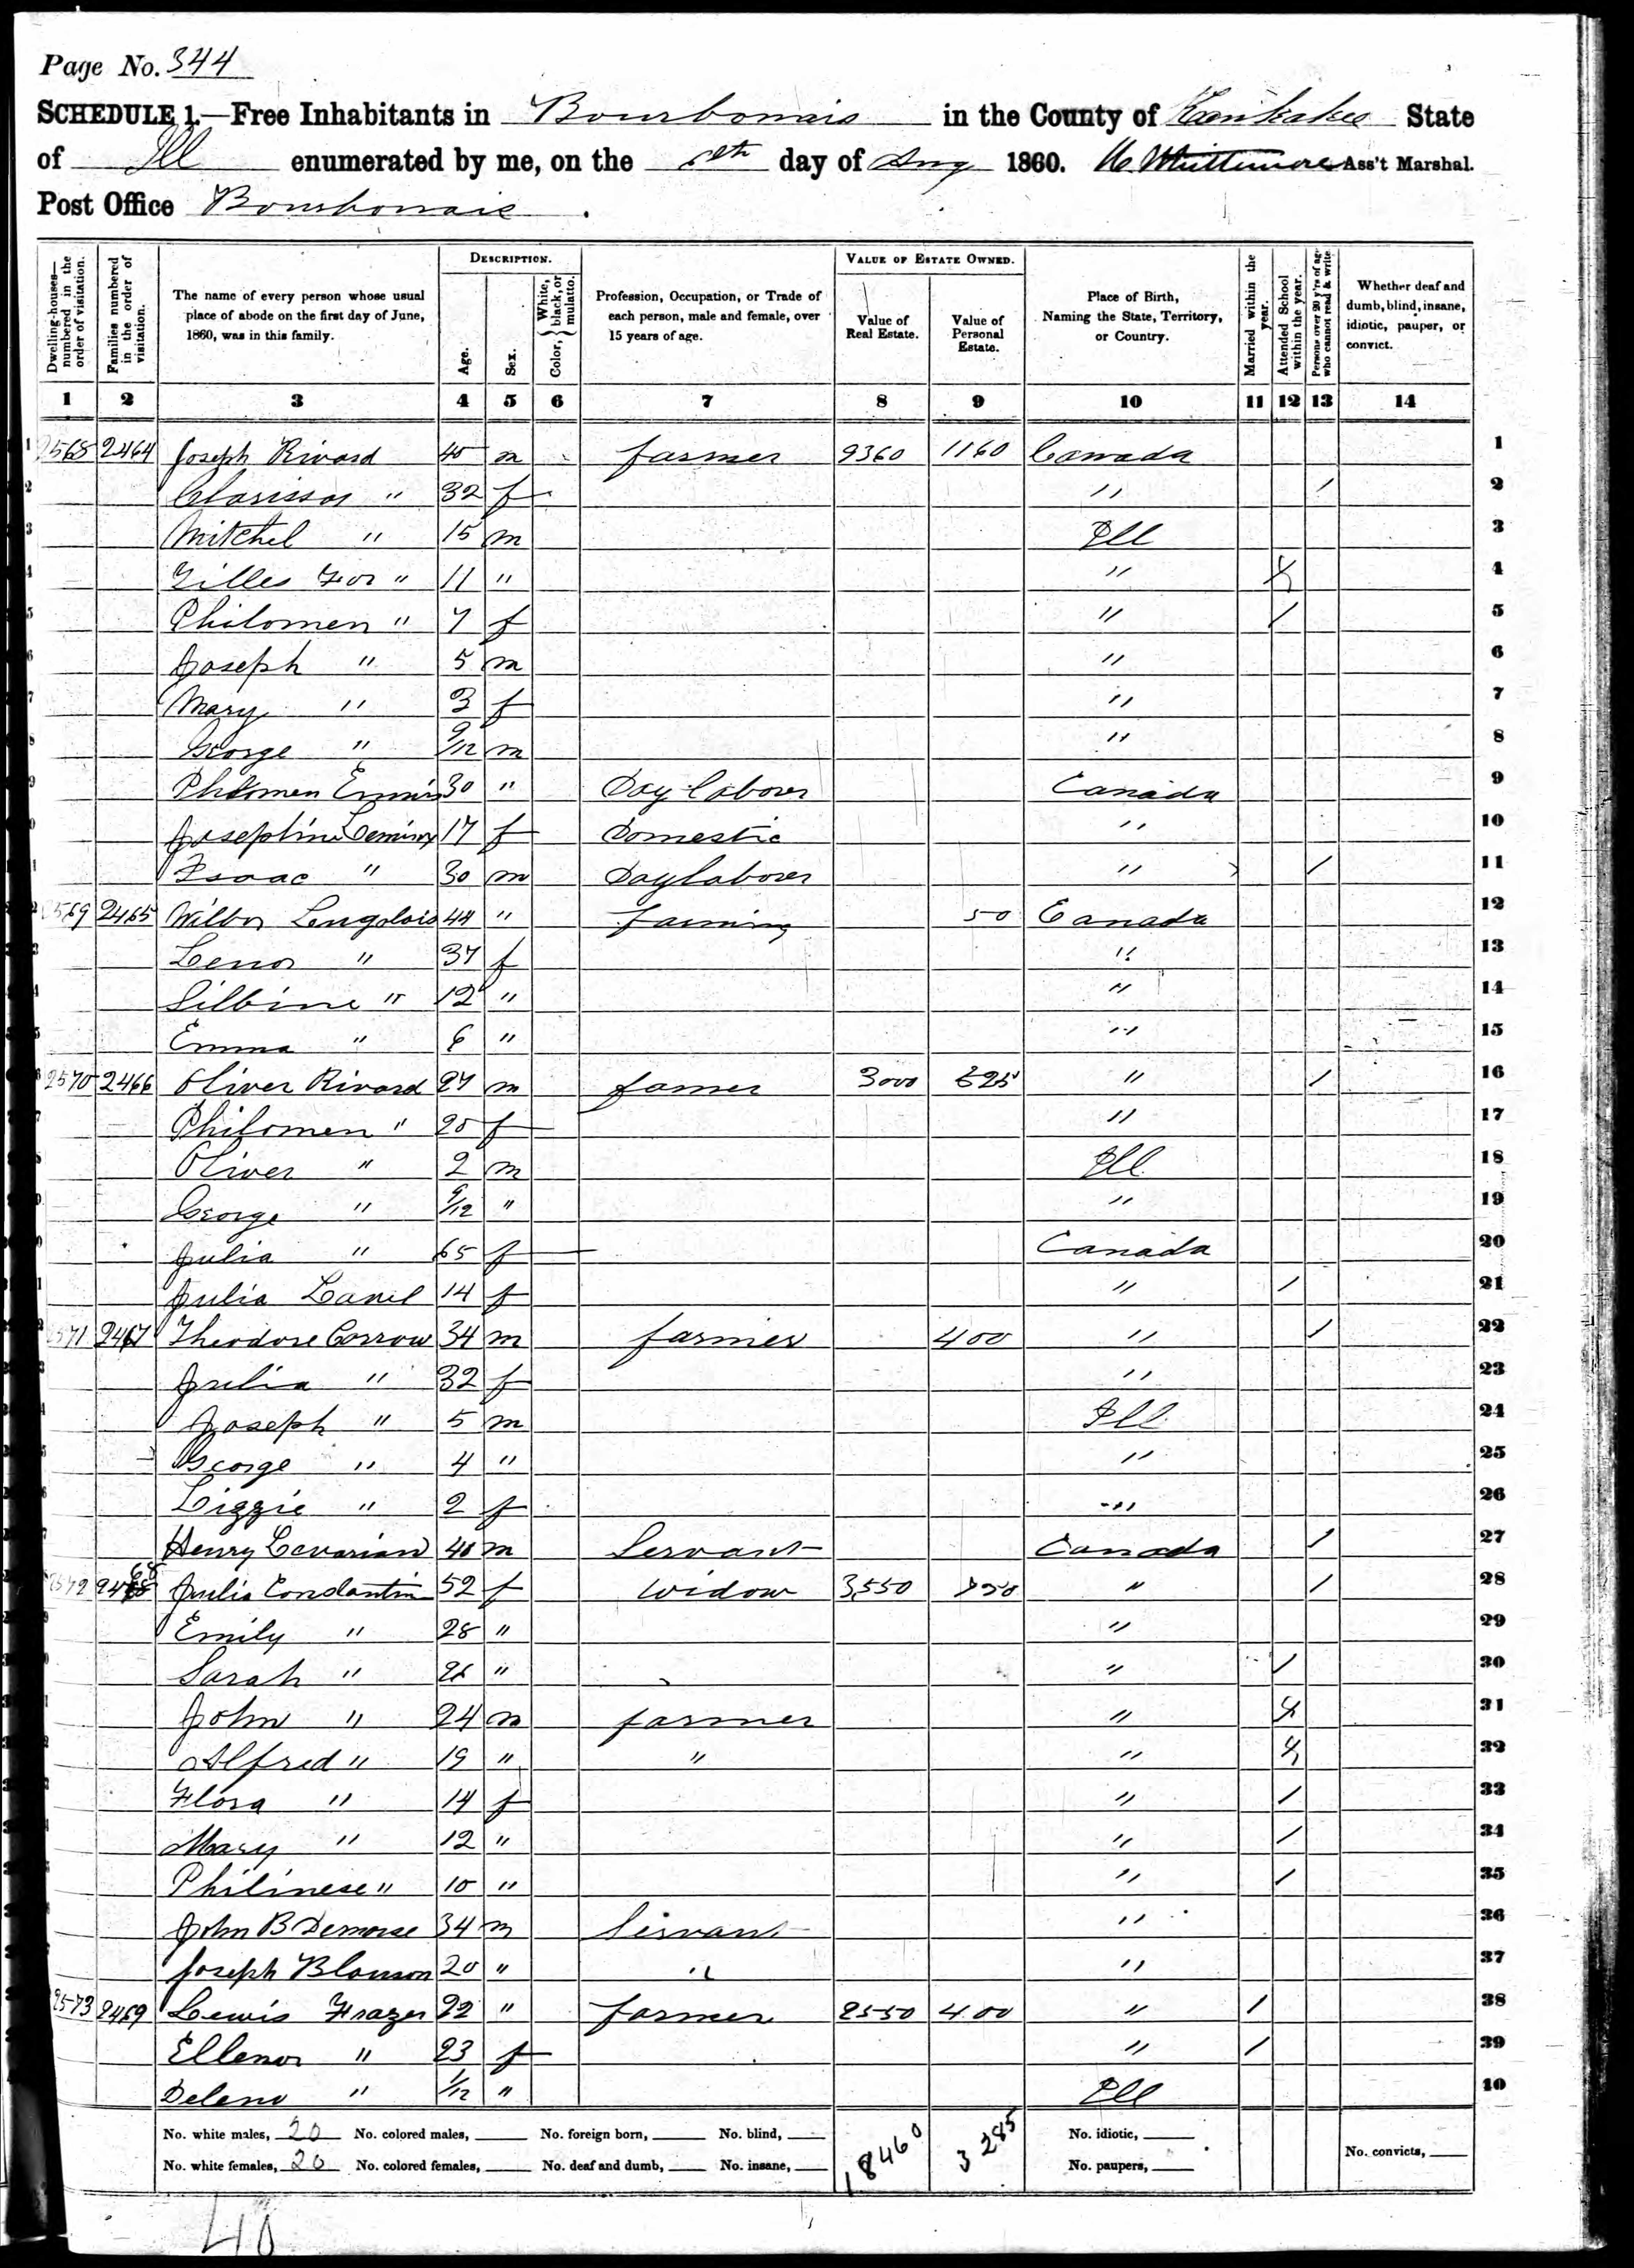 Page No. 344
SCHEDULE 1.—Free Inhabitants in Bourbonais in the County of Kankakee State
of Ill enumerated by me, on the day of Aug 1860. Whittimore Ass't Marshal.
Post Office Bourbonais.
Dwelling-houses—numbered in the order of visitation.
Families numbered in the order of visitation.
The name of every person whose usual place of abode on the first day of June, 1860, was in this family.
DESCRIPTION.
Age.
Sex.
Color, { White, black, or mulatto. }
Profession, Occupation, or Trade of each person, male and female, over 15 years of age.
VALUE OF ESTATE OWNED.
Value of Real Estate.
Value of Personal Estate.
Place of Birth, Naming the State, Territory, or Country.
Married within the year.
Attended School within the year.
Persons over 20 y'rs of age who cannot read & write.
Whether deaf and dumb, blind, insane, idiotic, pauper, or convict.
1 2 3 4 5 6 7 8 9 10 11 12 13 14
1 2568 2464 Joseph Rivard 40 m farmer 9360 1160 Canada 1
2 Clarissa " 32 f " / 2
3 Mitchel " 15 m Ill 3
4 Gilles " 11 " " 4
5 Philomen " 7 f " / 5
6 Joseph " 5 m " 6
7 Mary " 3 f " 7
8 George " 9/12 m " 8
9 Philomen 30 " Day laborer Canada 9
Josephine 17 f Domestic " 10
Isaac " 30 m Day laborer " / 11
2569 2465 Wilbor Lenglois 44 " farming 50 Canada 12
Lenor " 37 f " 13
Silbine " 12 " " 14
Emma " 6 " " 15
2570 2466 Oliver Rivard 27 m farmer 3000 525 " / 16
Philomen " 20 f " 17
Oliver " 2 m Ill 18
George " 9/12 " " 19
Julia " 65 f Canada 20
Julia Lanel 14 f " / 21
2571 2467 Theodore Corrow 34 m farmer 400 " / 22
Julia " 32 f " 23
Joseph " 5 m Ill 24
George " 4 " " 25
Lizzie " 2 f " 26
Henry Levarian 40 m Servant Canada / 27
2572 2468 Julia Constantin 52 f Widow 3550 750 " / 28
Emily " 28 " " 29
Sarah " 26 " " / 30
John " 24 m farmer " 31
Alfred " 19 " " " 32
Flora " 14 f " / 33
Mary " 12 " " / 34
Philinese " 10 " " / 35
John B Demorse 34 m Servant " 36
Joseph Blouson 20 " " " 37
2573 2469 Lewis Frazer 22 " farmer 2550 400 " / 38
Ellenor " 23 f " / 39
Deleno " 1/12 " Ill 40
No. white males, 20 No. colored males, No. foreign born, No. blind, 18460 3285 No. idiotic,
No. white females, 20 No. colored females, No. deaf and dumb, No. insane, No. paupers, No. convicts,
40